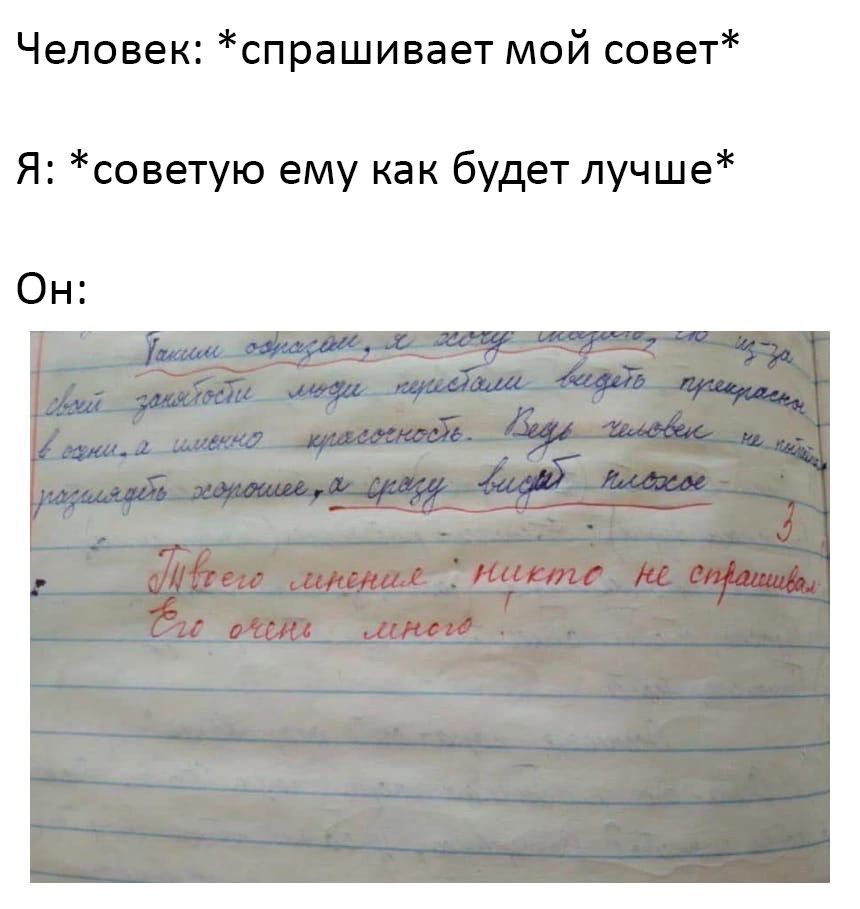 Человек: *спрашивает мой совет*
Я: *советую ему как будет лучше*
Он:
Таким образом, я хочу сказать, что из-за
своей занятости люди перестали видеть прекрасное
в осени, а именно красочность. Ведь человек не
разглядеть хорошее, а сразу видит плохое
3
Твоего мнения никто не спрашивал
Его очень много!